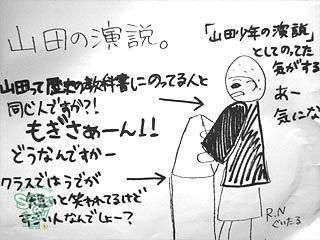 山田の演説。
「山田少年の演説」
としてのってた
気がする
あー
気にな
山田って歴史の教科書にのってる人と
同じ人ですか?!
もぎさぁーん!!
どうなんですかー
クラスではうでが
短いと笑われてるけど
すごい人なんでしょー?
R.N
ぐいたる